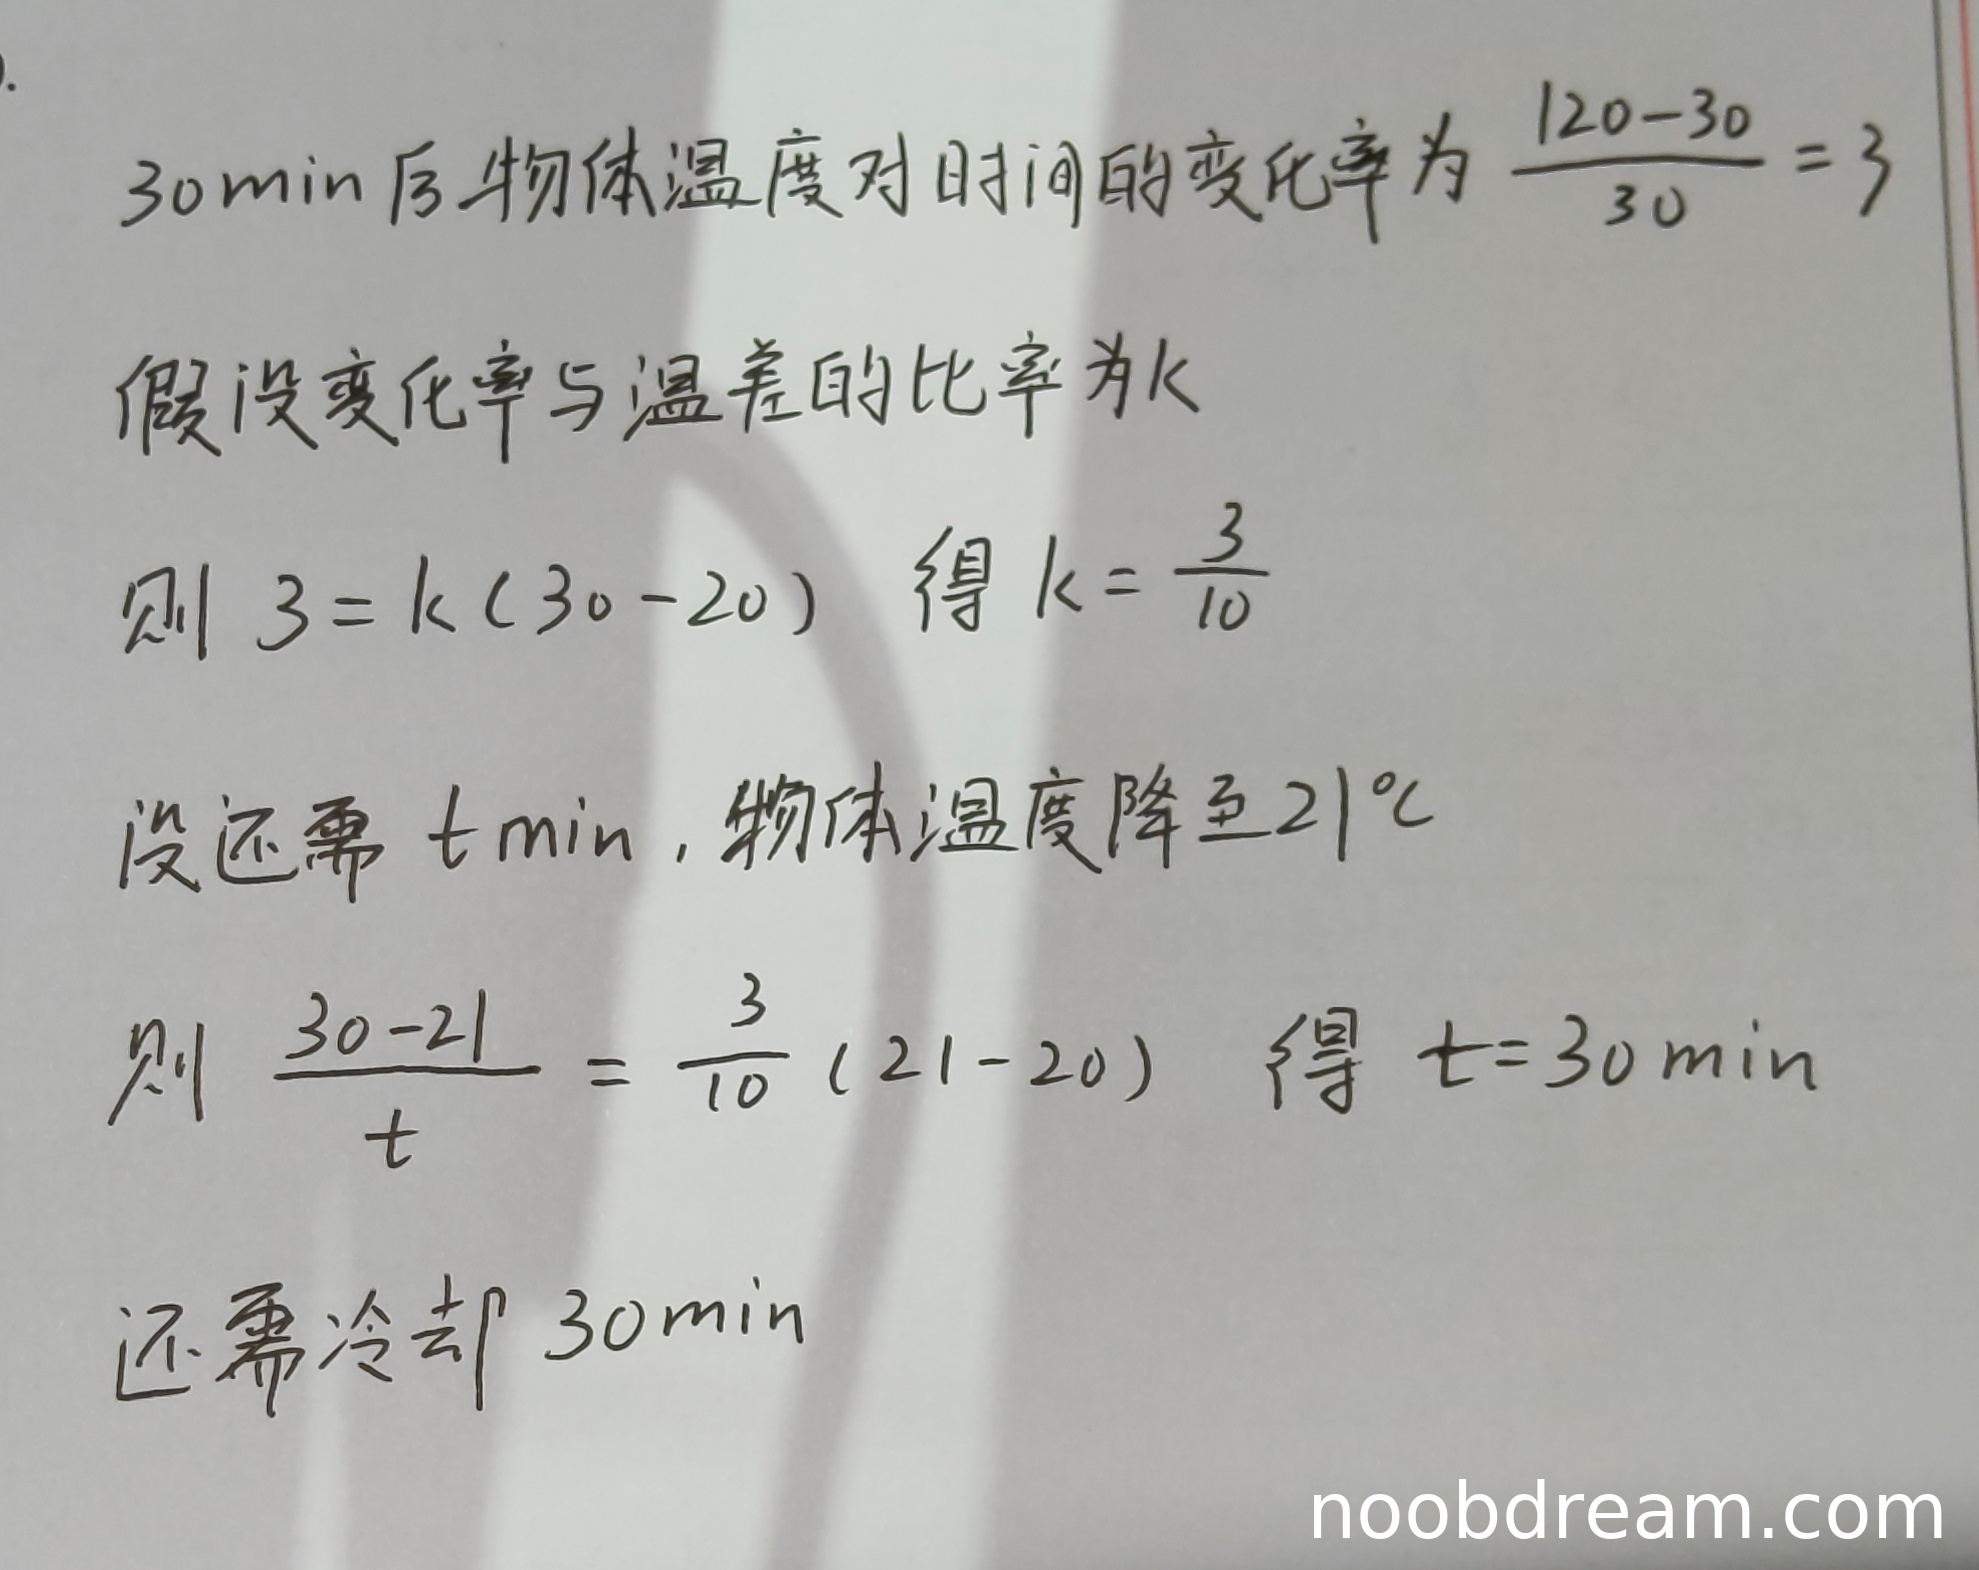 30min后物体温度对时间的变化率为 \frac{120-30}{30} = 3
假设变化率与温差的比率为k
则 3 = k(30-20) 得 k = \frac{3}{10}
设还需 t min,物体温度降至21℃
则 \frac{30-21}{t} = \frac{3}{10}(21-20) 得 t = 30min
还需冷却 30min
noobdream.com